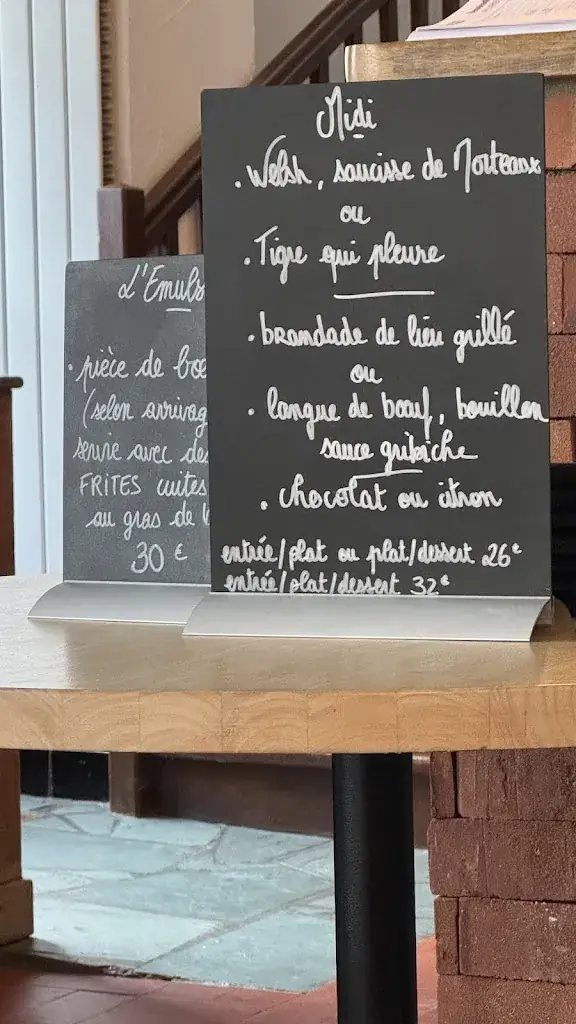 Midi
. Welsh, saucisse de Morteaux
ou
. Tigre qui pleure
. brandade de lieu grillé
ou
. langue de bœuf, bouillon
sauce gribiche
. chocolat ou citron
entrée/plat ou plat/dessert 26€
entrée/plat/dessert 32€
L'Emuls
. pièce de bœ
(selon arrivag
servie avec de
FRITES cuites
au gras de
30 €